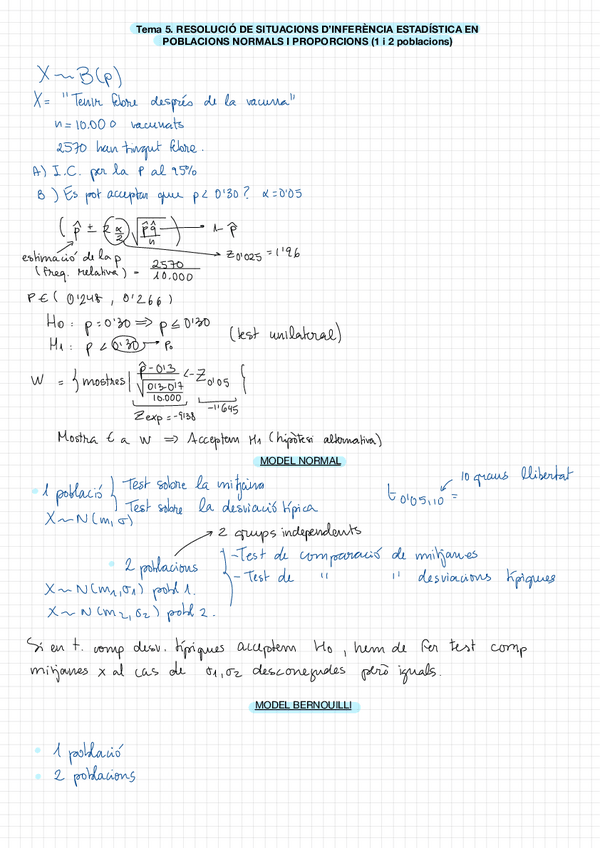 Tema 5. RESOLUCIÓ DE SITUACIONS D'INFERÈNCIA ESTADÍSTICA EN
POBLACIONS NORMALS I PROPORCIONS (1 i 2 poblacions)
X ~ B(p)
X = "Tenir febre després de la vacuna"
n = 10.000 vacunats
2570 han tingut febre.
A) I.C. per la P al 95%
B) Es pot acceptar que p < 0'30? α = 0'05
( p̂ ± z α/2 √(p̂q̂/n) ) → 1 - p̂
estimació de la p
(freq. relativa) = 2570/10.000
Z0'025 = 1'96
P ∈ ( 0'248 , 0'266 )
H0 : p = 0'30 ⇒ p ≤ 0'30
H1 : p < 0'30 → p0
(test unilateral)
W = { mostres | (p̂ - 0'3)/√(0'3·0'7/10.000) < -Z0'05 }
Zexp = -9'38
-1'645
Mostra ∈ a W ⇒ Acceptem H1 (hipòtesi alternativa)
MODEL NORMAL
1 població } Test sobre la mitjana
Test sobre la desviació típica
X ~ N(m, σ)
10 graus llibertat
t0'05,10 =
2 grups independents
2 poblacions
- Test de comparació de mitjanes
- Test de " " desviacions típiques
X ~ N(m1, σ1) pobl 1.
X ~ N(m2, σ2) pobl 2.
Si en t. comp desv. típiques acceptem H0, hem de fer test comp
mitjanes x al cas de σ1, σ2 desconegudes però iguals.
MODEL BERNOUILLI
1 població
2 poblacions